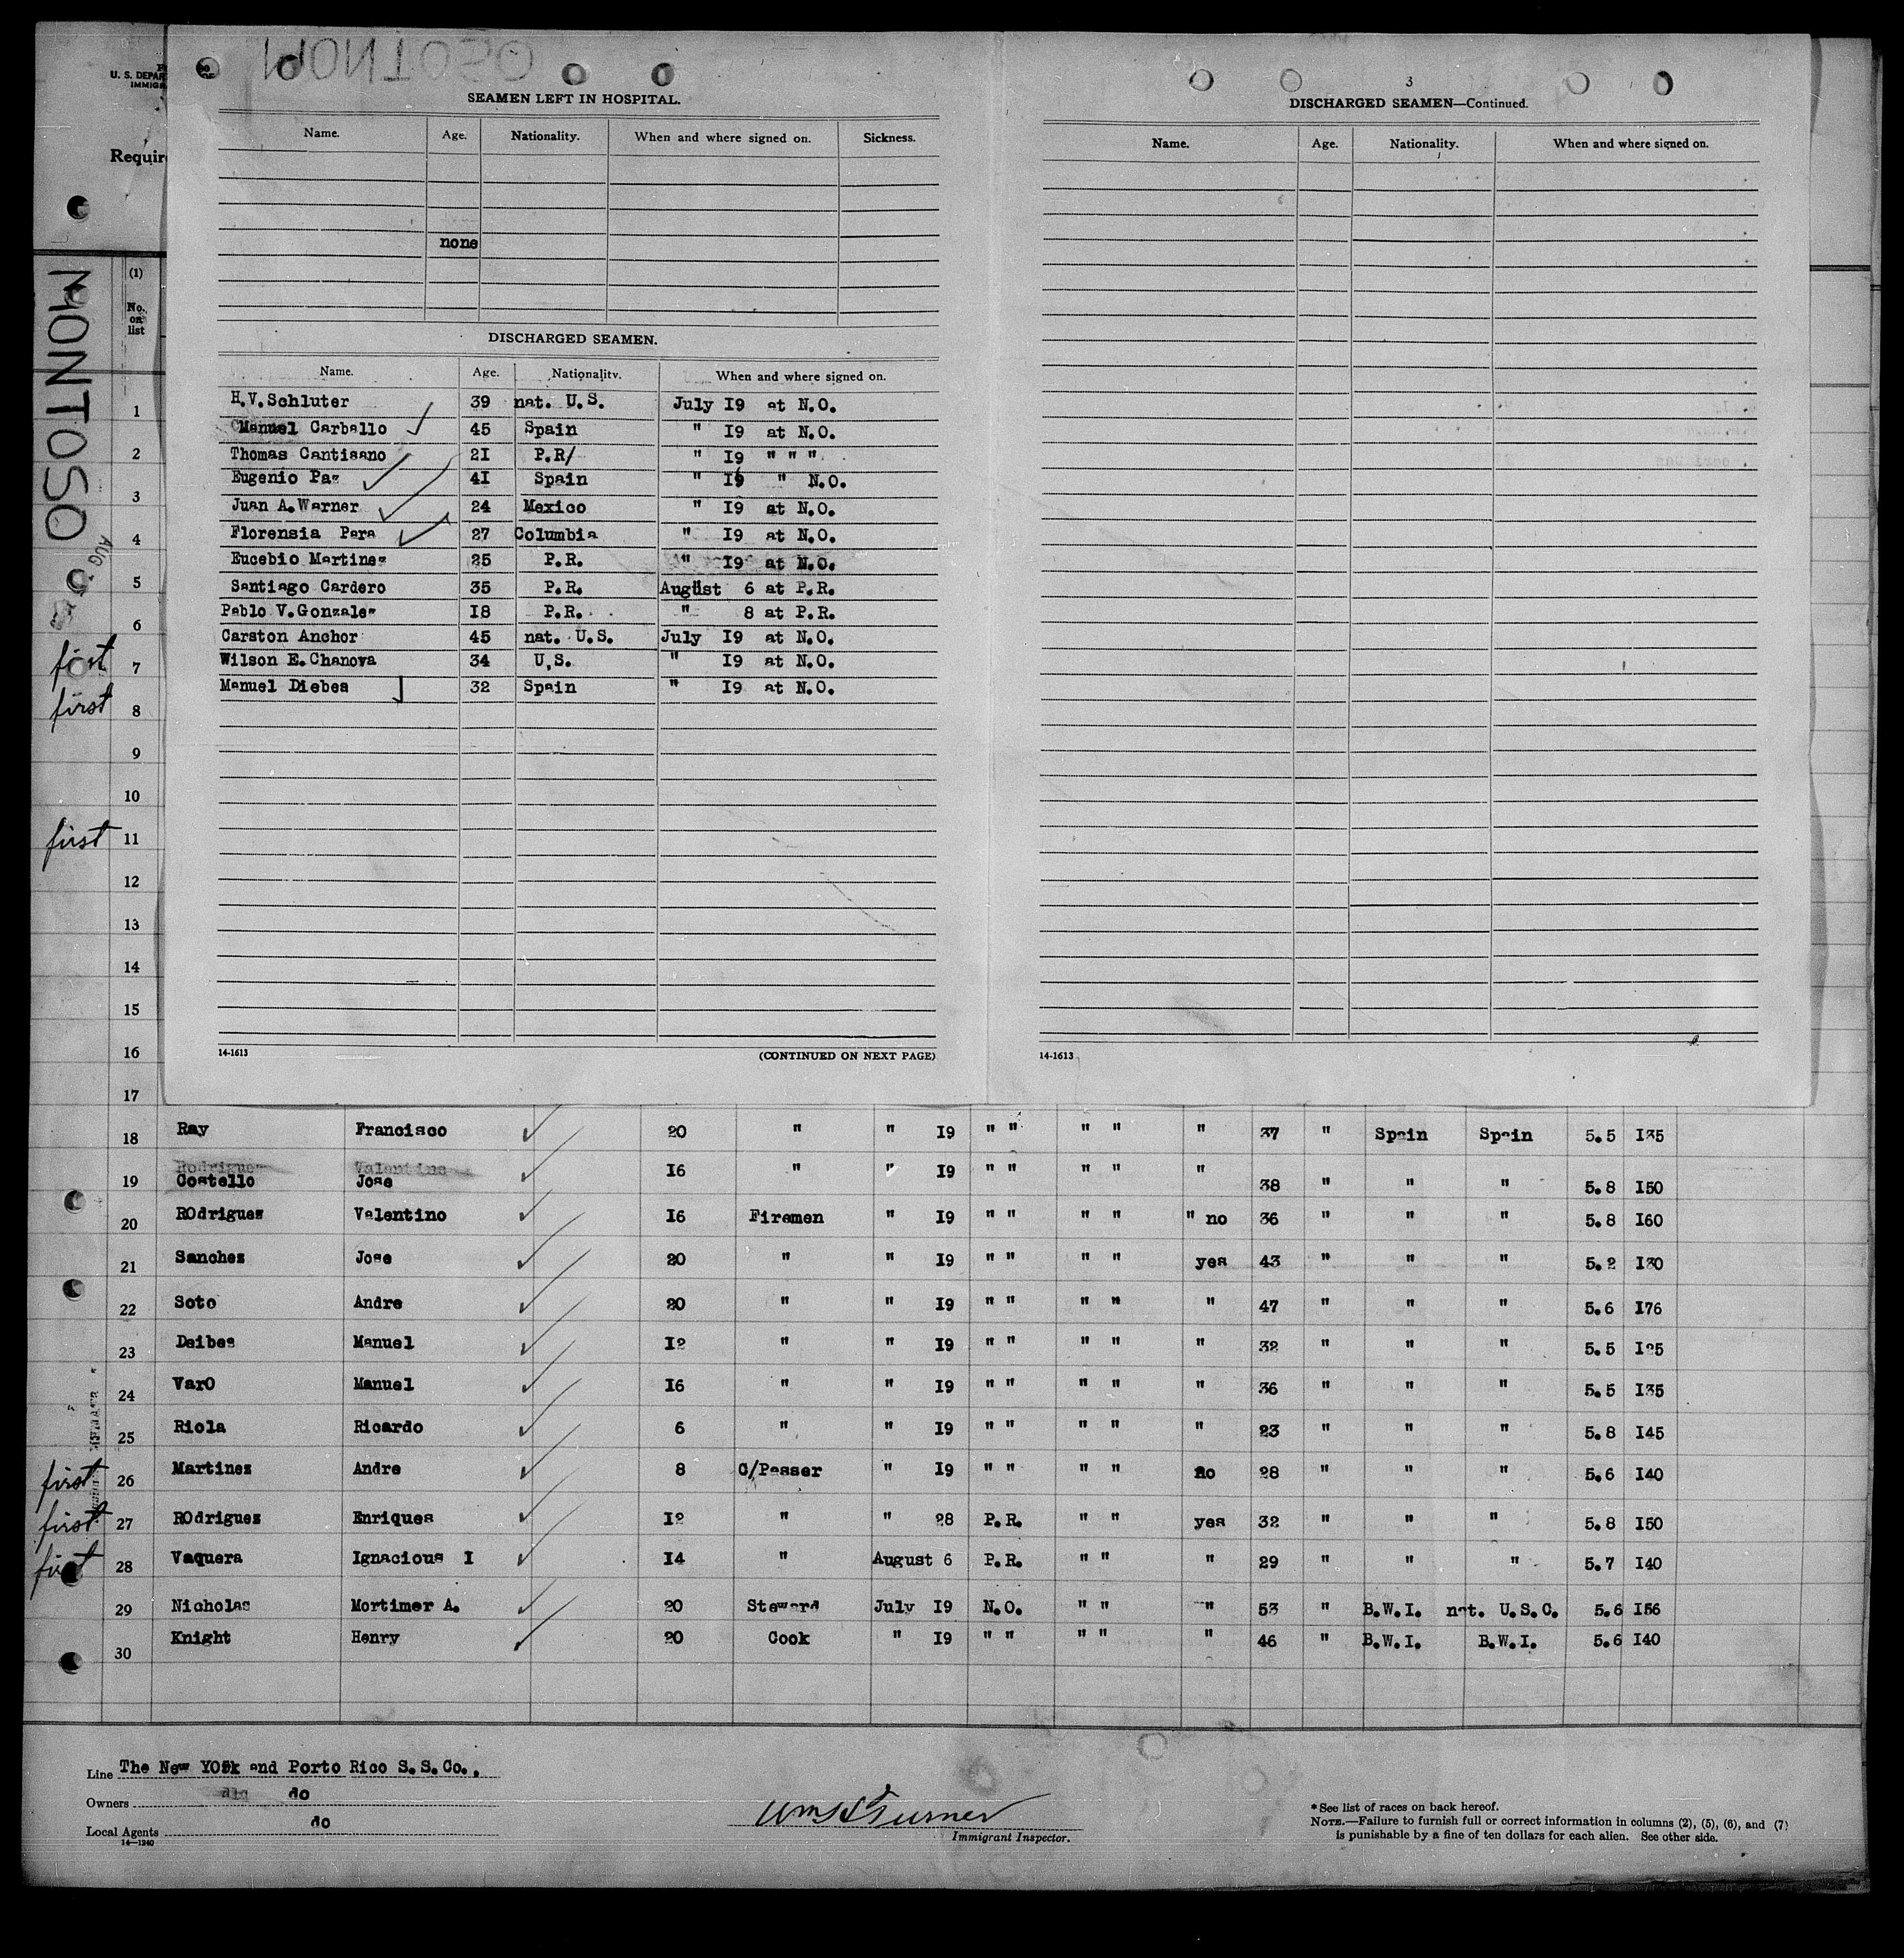 MONTOSO
U. S. DEPAR
IMMIG
Requir
SEAMEN LEFT IN HOSPITAL.
Name. Age. Nationality. When and where signed on. Sickness.
none
DISCHARGED SEAMEN.
Name. Age. Nationality. When and where signed on.
H.V.Schluter 39 nat. U.S. July I9 at N.O.
Manuel Carballo 45 Spain " I9 at N.O.
Thomas Cantisano 2I P.R/ " I9 " " "
Eugenio Paz 4I Spain " I9 " N.O.
Juan A.Warner 24 Mexico " I9 at N.O.
Florensia Para 27 Columbia " I9 at N.O.
Eucebio Martinez 25 P.R. " I9 at N.O.
Santiago Cardero 35 P.R. August 6 at P.R.
Pablo V.Gonzalez I8 P.R. " 8 at P.R.
Carston Anchor 45 nat. U.S. July I9 at N.O.
Wilson E.Chanova 34 U.S. " I9 at N.O.
Manuel Diebes 32 Spain " I9 at N.O.
14-1613 (CONTINUED ON NEXT PAGE)
3
DISCHARGED SEAMEN—Continued.
Name. Age. Nationality. When and where signed on.
14-1613
MONTOSO
AUG
(1)
No. on list
1
2
3
4
5
6
first 7
first 8
9
10
first 11
12
13
14
15
16
17
18 Ray Francisco 20 " " I9 " " " " " 37 " Spain Spain 5.5 I35
Rodriguez Valentino
19 Costello Jose I6 " " I9 " " " " " 38 " " " 5.8 I50
20 ROdriguez Valentino I6 Firemen " I9 " " " " " no 36 " " " 5.8 I60
21 Sanchez Jose 20 " " I9 " " " " yes 43 " " " 5.2 I30
22 Soto Andre 20 " " I9 " " " " " 47 " " " 5.6 I76
23 Deibes Manuel I2 " " I9 " " " " " 32 " " " 5.5 I25
24 VarO Manuel I6 " " I9 " " " " " 36 " " " 5.5 I35
25 Riola Ricardo 6 " " I9 " " " " " 23 " " " 5.8 I45
first 26 Martinez Andre 8 C/Passer " I9 " " " " no 28 " " " 5.6 I40
first 27 ROdriguez Enriques I2 " " 28 P.R. " " yes 32 " " " 5.8 I50
first 28 Vaquera Ignacious I I4 " August 6 P.R. " " " 29 " " " 5.7 I40
29 Nicholas Mortimer A. 20 Steward July I9 N.O. " " " 53 " B.W.I. nat. U.S.C. 5.6 I56
30 Knight Henry 20 Cook " I9 " " " " " 46 " B.W.I. B.W.I. 5.6 I40
Line The New YOrk and Porto Rico S.S.Co.,
Owners do
Local Agents do
14—1240
Wm H Turner
Immigrant Inspector.
* See list of races on back hereof.
NOTE.—Failure to furnish full or correct information in columns (2), (5), (6), and (7)
is punishable by a fine of ten dollars for each alien. See other side.